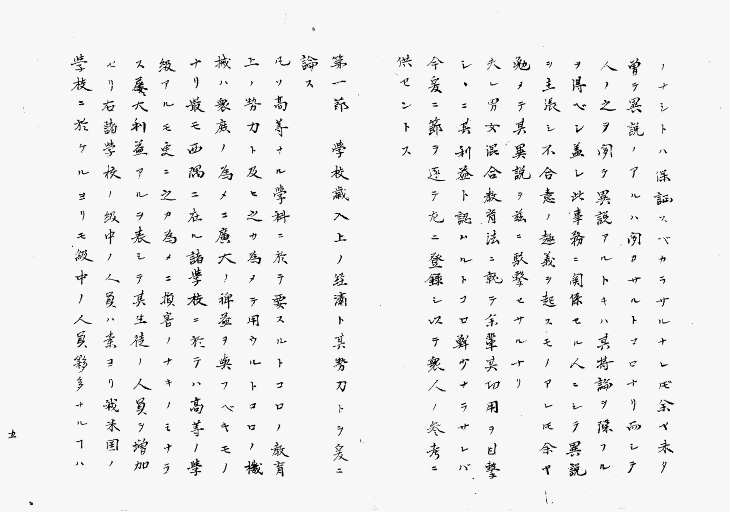 ノナシトハ保証スベカラサルナレ𪜈余ヤ未タ
曽テ異説ノアルハ聞カサルトコロナリ而シテ
人ノ之ヲ聞テ異説アルトキハ其持論ヲ陳フル
ヲ得ベシ蓋シ此事務ニ関係セル人ニシテ異説
ヲ主張シ不合意ノ趣義ヲ起スモノアレ𪜈余ヤ
勉メテ其異説ヲ茲ニ駁撃セサルナリ
夫レ男女混合教育法ニ就テ余輩其功用ヲ目撃
シヽニ其利益ト認ムルトコロ鮮少ナラサレバ
今爰ニ節ヲ逐テ左ニ登録シ以テ衆人ノ参考ニ
供セントス
第一節 学校歳入上ノ経済ト其勢力トヲ爰ニ
論ス
凡ソ高等ナル学科ニ於テ要スルトコロノ教育
上ノ勢力ト及ヒ之カ為メテ用ウルトコロノ機
械ハ衆庶ノ為メニ廣大ノ裨益ヲ與フベキモノ
ナリ最モ西隅ニ在ル諸學校ニ於テハ高等ノ學
級アルモ更ニ之カ為メニ損害ノナキノミナラ
ス屡大利益アルヲ表シテ其生徒ノ人員ヲ増加
セリ右諸學校ノ級中ノ人員ハ素ヨリ我米国ノ
學校ニ於ケルヨリモ級中ノ人員夥多ナルヿハ
五